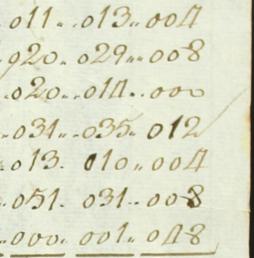 ..011.. 013.. 004
..020.. 029.. 008
..020.. 014.. 000
..031.. 035.. 012
..013.. 010.. 004
..051.. 031.. 008
..000.. 001.. 048